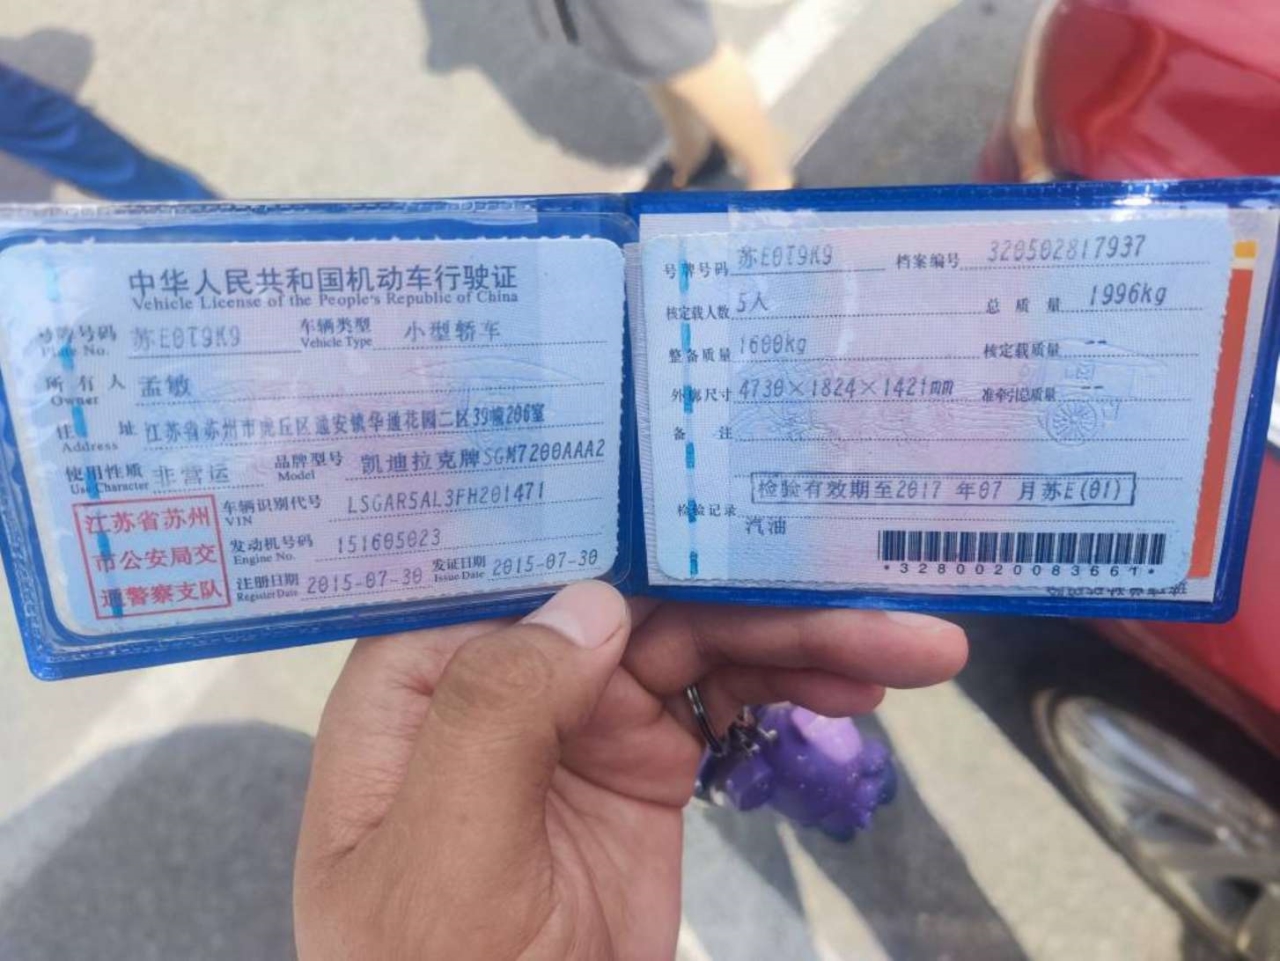 中华人民共和国机动车行驶证
Vehicle License of the People's Republic of China
号牌号码 苏E0T9K9 车辆类型 小型轿车
Plate No. Vehicle Type
所有人 孟敏
Owner
住址 江苏省苏州市虎丘区通安镇华通花园二区39幢206室
Address
使用性质 非营运 品牌型号 凯迪拉克牌SGM7200AAA2
Use Character Model
江苏省苏州
市公安局交
通警察支队
车辆识别代号 LSGAR5AL3FH201471
VIN
发动机号码 151605023
Engine No.
注册日期 2015-07-30 发证日期 2015-07-30
Register Date Issue Date
号牌号码 苏E0T9K9 档案编号 320502817937
核定载人数 5人 总质量 1996kg
整备质量 1600kg 核定载质量 --
外廓尺寸 4730×1824×1421mm 准牵引总质量 --
备注
检验有效期至2017 年07 月苏E(01)
检验记录
汽油
*3280020083661*